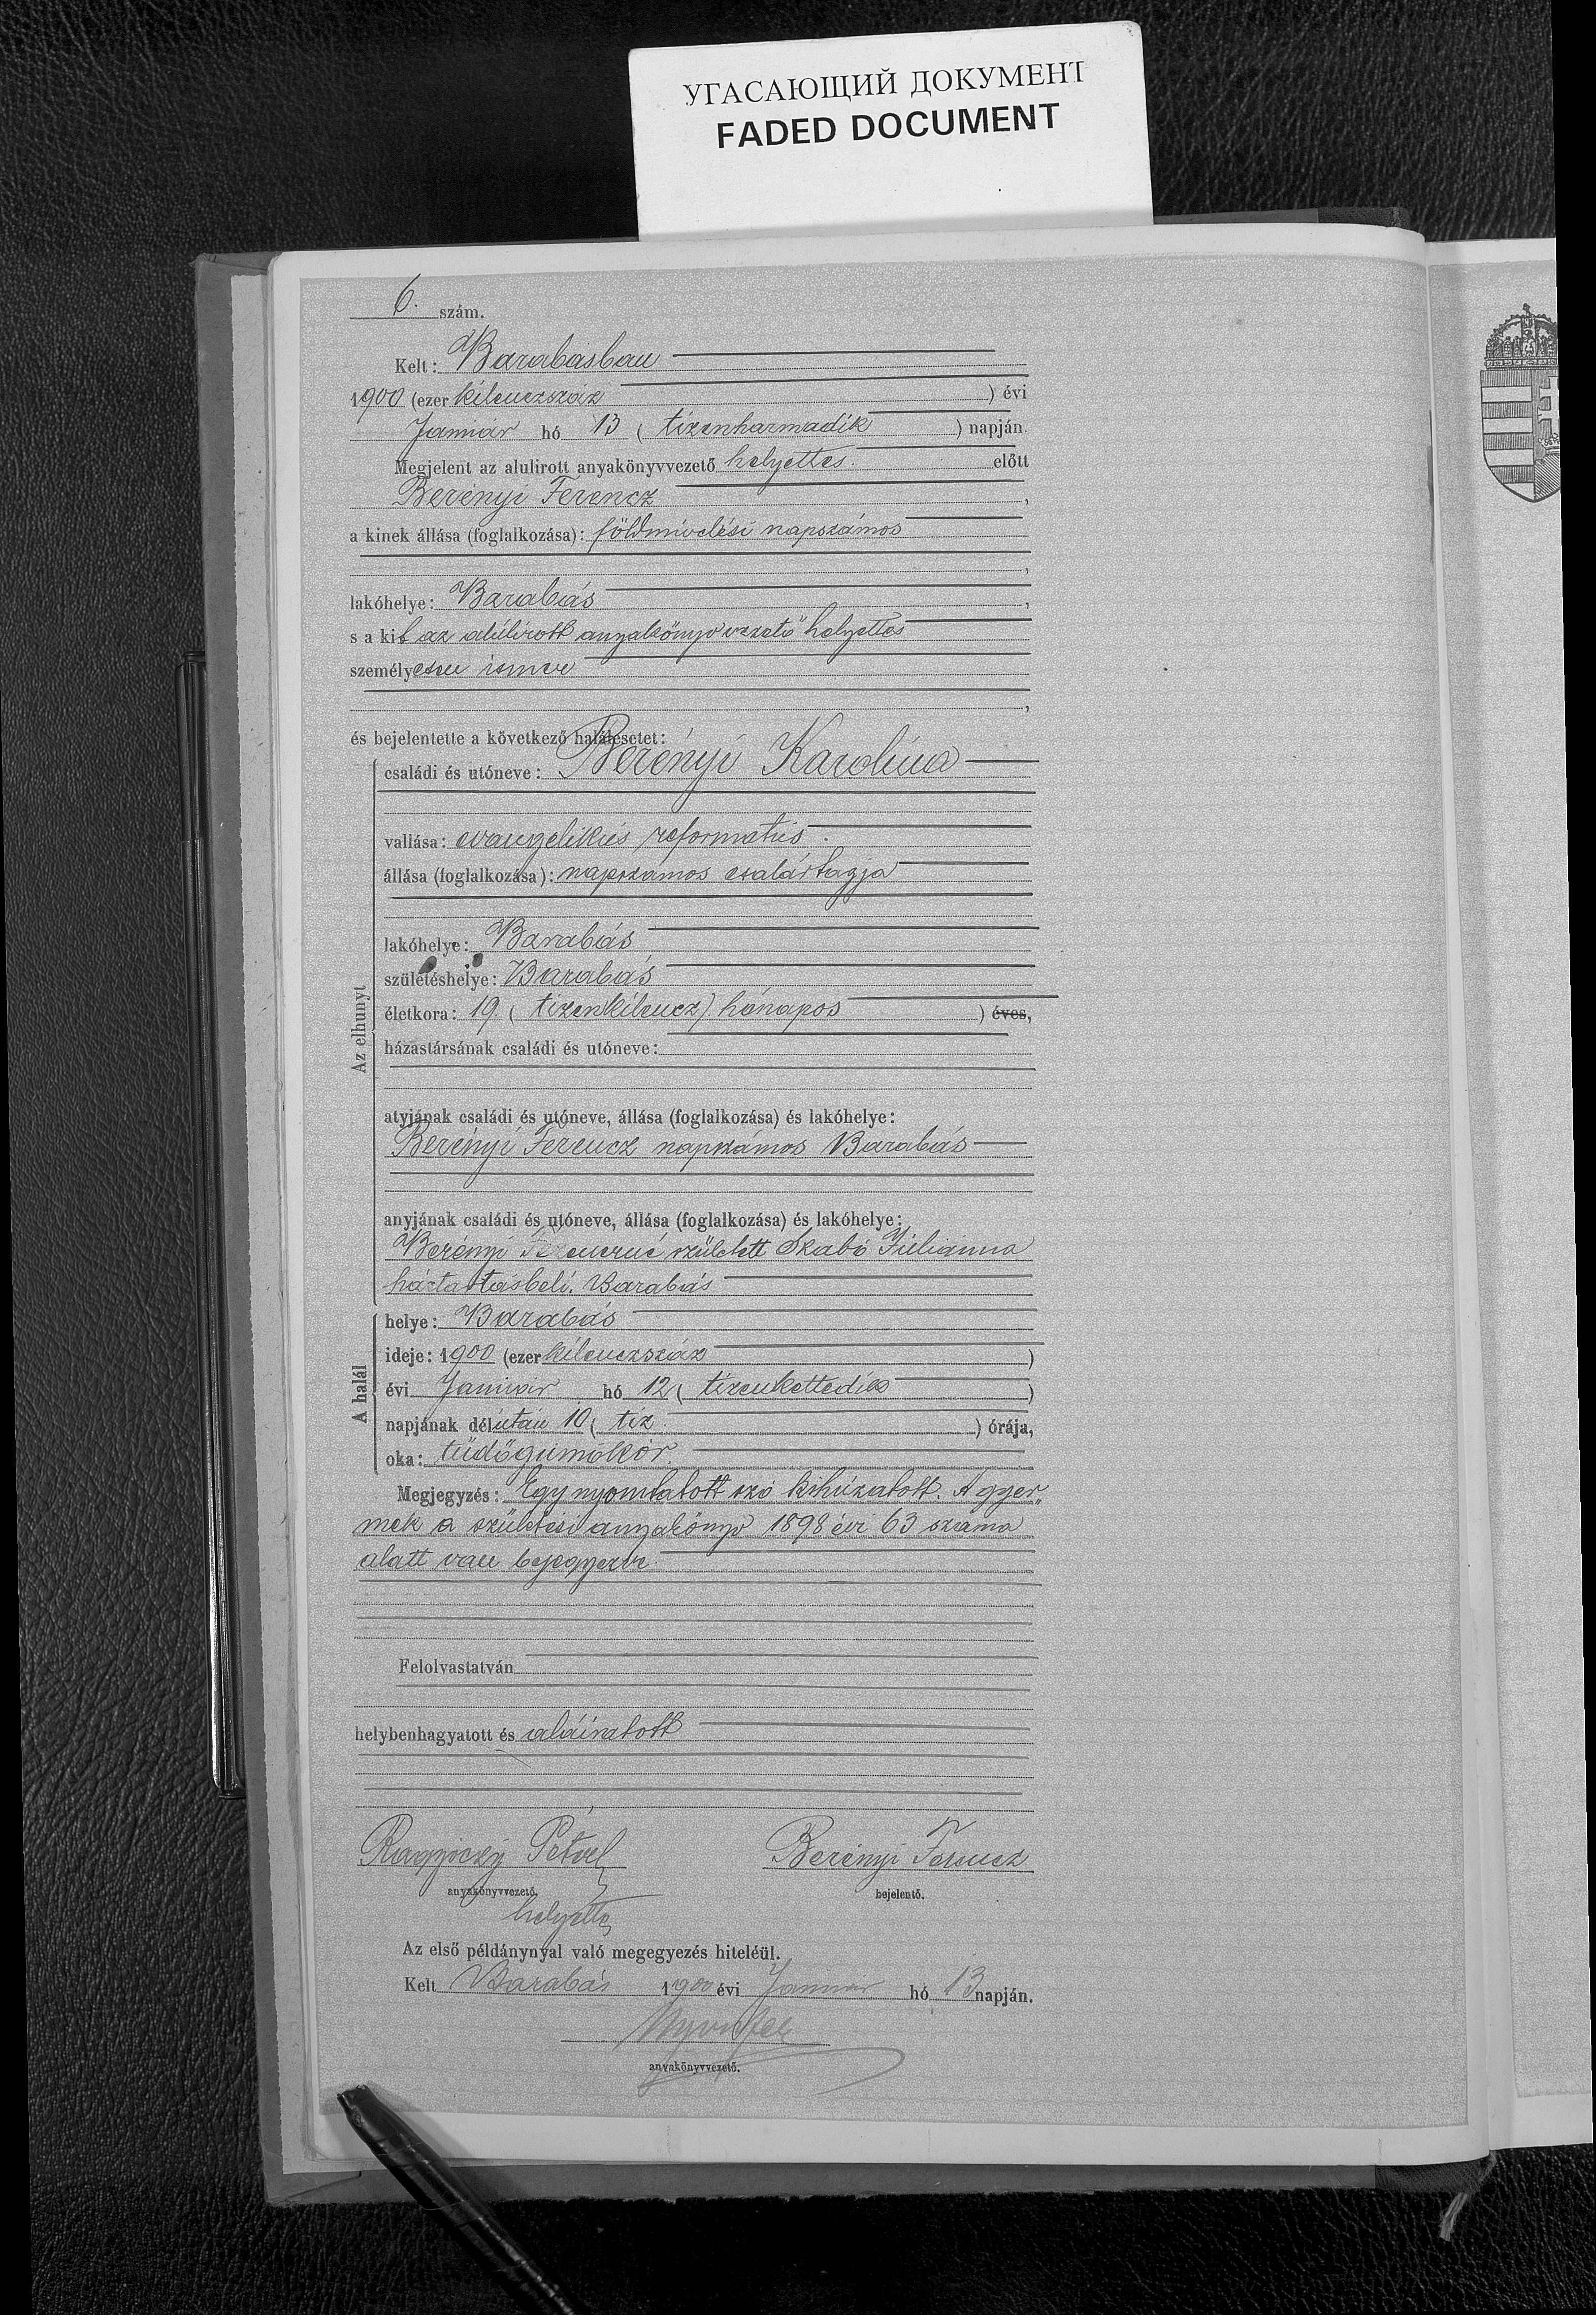 УГАСАЮЩИЙ ДОКУМЕНТ
FADED DOCUMENT
6. szám.
Kelt: Barabásban
1900 (ezer kilenczszáz ) évi
Január hó 13 ( tizenharmadik ) napján.
Megjelent az alulirott anyakönyvvezető helyettes előtt
Berényi Ferencz ,
a kinek állása (foglalkozása): földmivelési napszámos
,
lakóhelye: Barabás ,
s a kit az alúlirott anyakönyvvezető helyettes
személyesen ismer
,
és bejelentette a következő halálesetet:
családi és utóneve: Berényi Karolina
vallása: evangelikús reformatús.
állása (foglalkozása): napszámos családtagja
lakóhelye: Barabás
születéshelye: Barabás
életkora: 19. ( tizenkilencz) hónapos ) éves,
házastársának családi és utóneve:
Az elhunyt
atyjának családi és utóneve, állása (foglalkozása) és lakóhelye:
Berényi Ferencz napszámos Barabás
anyjának családi és utóneve, állása (foglalkozása) és lakóhelye:
Berényi Ferenczné született Szabó Júlianna
háztartásbeli. Barabás
A halál
helye: Barabás
ideje: 1900 (ezer kilenczszáz )
évi Január hó 12 ( tizenkettedik )
napjának délután 10 ( tíz ) órája,
oka: tüdőgümőkór.
Megjegyzés: Egy nyomtatott szó kihúzatott. A gyer„
mek a születési anyakönyv 1898 évi 63 száma
alatt van bejegyezve.
Felolvastatván
helybenhagyatott és aláiratott
Berényi Ferencz
anyakönyvvezető. bejelentő.
helyettes
Az első példánynyal való megegyezés hiteléül.
Kelt Barabás 1900 évi Január hó 13 napján.
anyakönyvvezető.